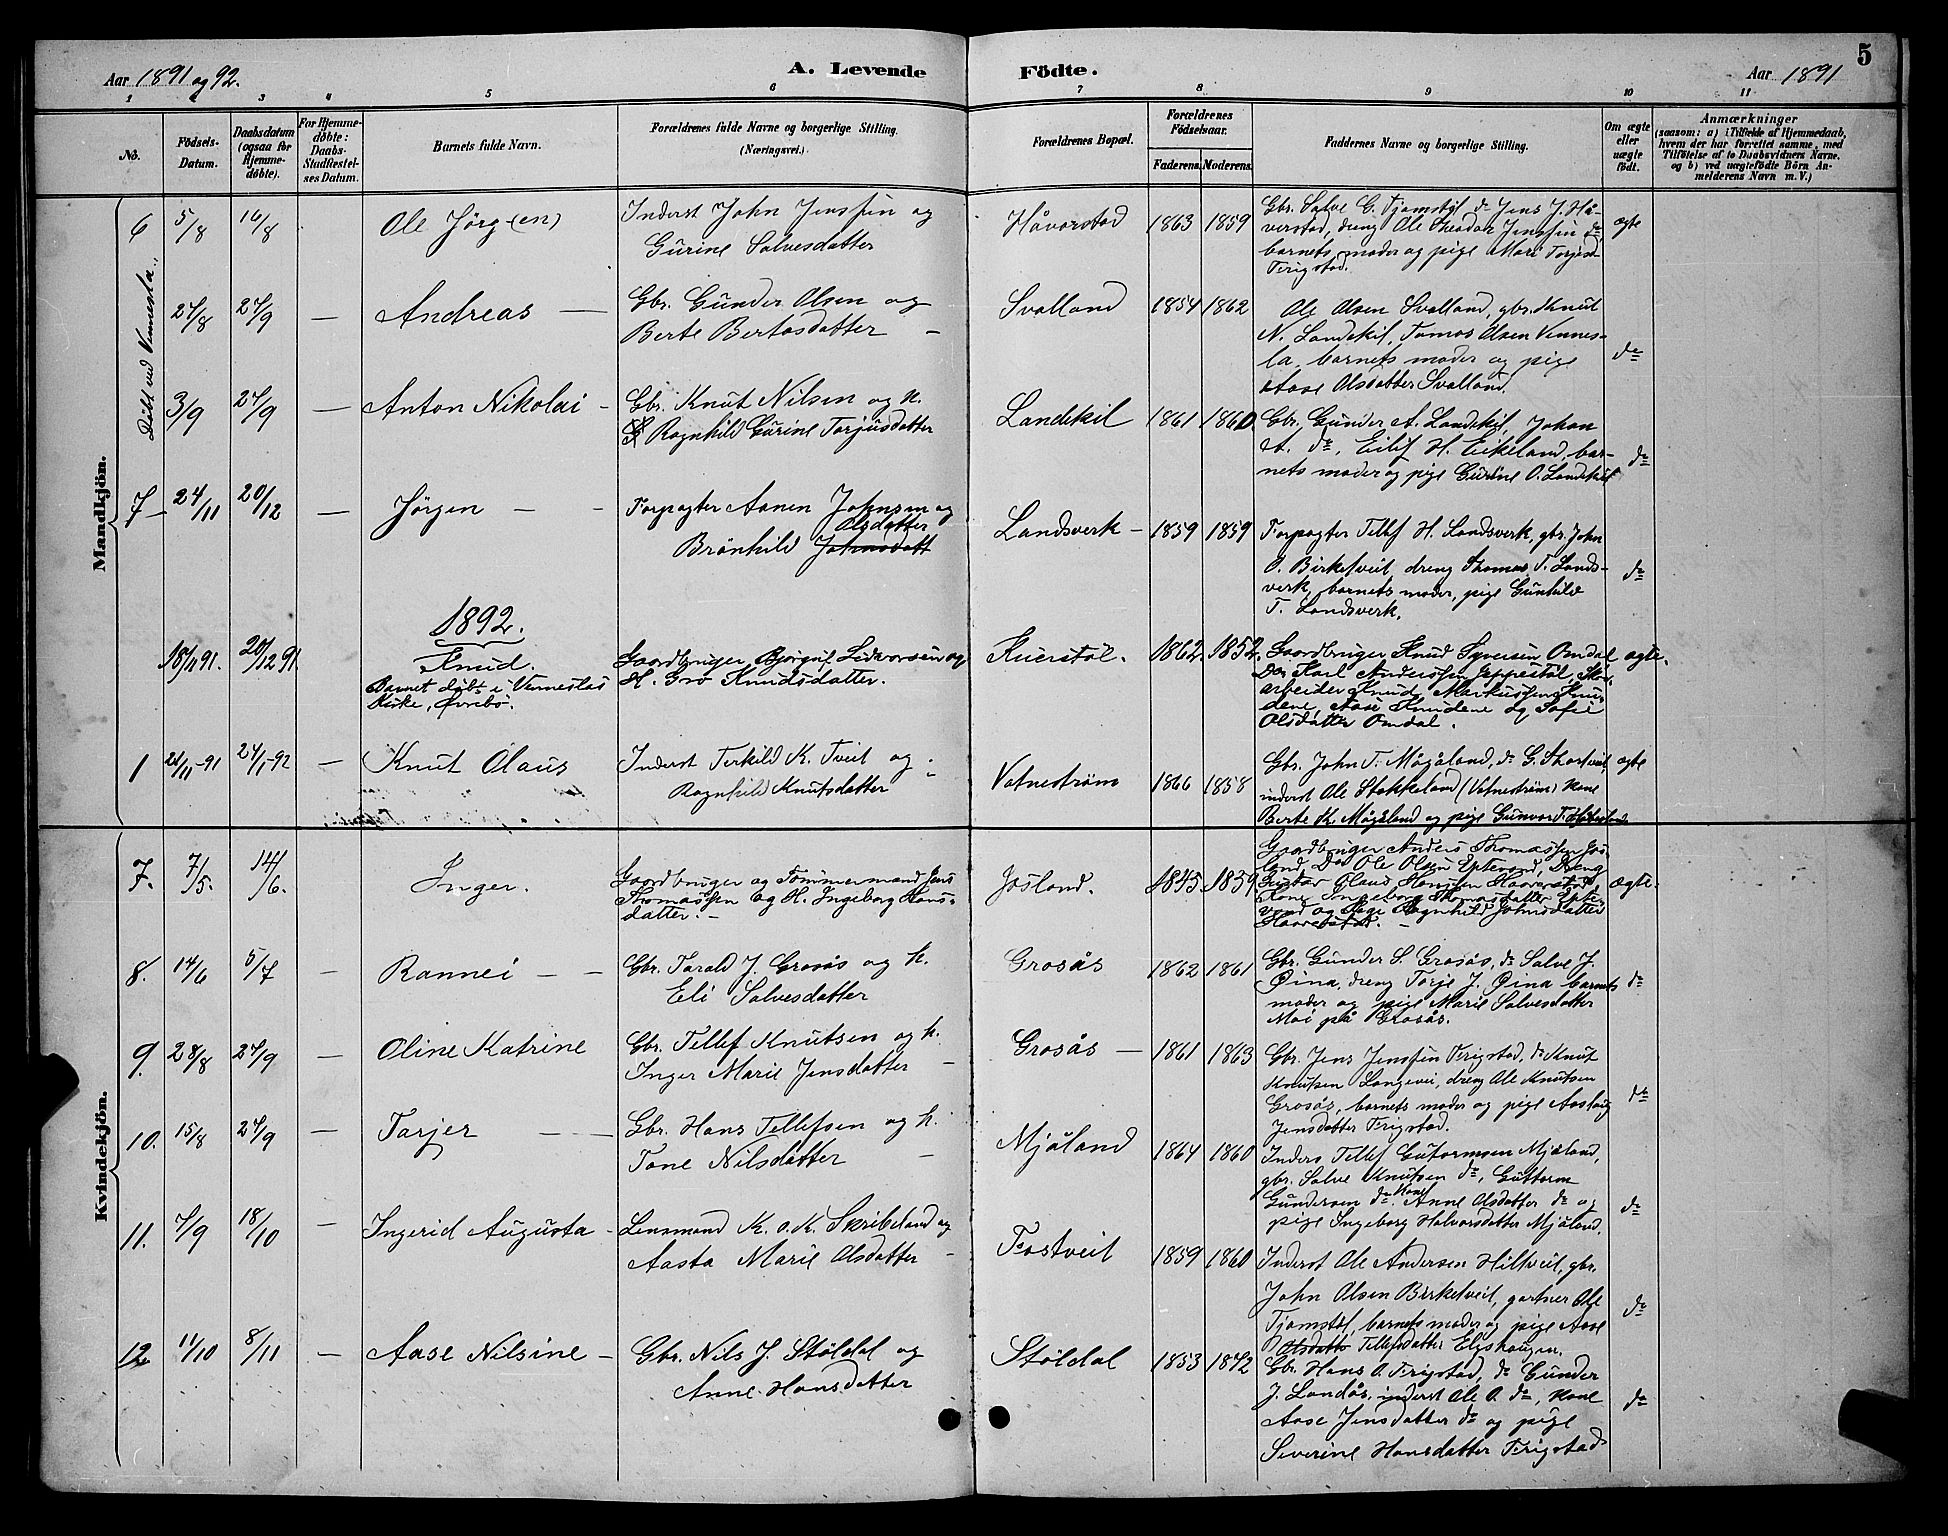 Aar 1891 og 92.
A. Levende Födte.
Aar 1891
5
1 2 3 4 5 6 7 8 9 10 11
No.
Födsels-Datum.
Daabsdatum (ogsaa for Hjemmedöbte).
For Hjemmedøbte: Daabs-Stadfæstelses Datum.
Barnets fulde Navn.
Forældrenes fulde Navne og borgerlige Stilling. (Næringsvei.)
Forældrenes Bopæl.
Forældrenes Födselsaar.
Faderens. Moderens.
Faddernes Navne og borgerlige Stilling.
Om ægte eller uægte født.
Anmærkninger
(saasom: a) i Tilfælde af Hjemmedaab, hvem der har forrettet samme, med Tilföielse af to Daabsvidners Navne, og b) ved uægtefödte Börn Anmelderens Navn m. V.)
Mandkjön.
Döbt ved Vennesla.
6 5/8 16/8 Ole Jörg(en)
Inderst John Jenssen og
Gurine Salvesdatter
Håvorstad 1863 1859
Gbr. Salve G. Tjomstöl do Jens J. Hå-
verstad, dreng Ole Theodor Jenssen do,
barnets moder og pige Mari Torjesd
Frigstad.
ægte
27/8 27/9 — Andreas —
Gbr. Gunder Olsen og
Berte Bertosdatter —
Svaland 1854 1862
Ole Olsen Svaland, gbr. Knut
N. Landekil, Tomas Olsen Vennes-
la, barnets moder og pige
Aase Olsdatter Svaland.
do
3/9 27/9 — Anton Nikolai —
Gbr. Knut Nilsen og k.
Ragnhild Gurine Torjusdatter
Landekil 1861 1860
Gbr. Gunder A. Landekil, Johan
A. do, Eilif H. Eikeland, bar-
nets moder og pige Gurine O. Landekil
do
7 — 24/11 20/12 — Jörgen — —
Forpagter Aanen Johnsen og
Olsdatter
Brönhild Johnsdatt
Landsverk — 1859 1859
Forpagter Tellef H. Landsverk, gbr. John
O. Birketveit dreng Thomas T. Lands-
verk, barnets moder, pige Gunhild
T. Landsverk.
do
1892.
18/11 91. 20/12 91 Knud.
Barnet døbt i Vennesla
Kirke, Øvrebø.
Gaardbruger Bjørguf Lidvorsen og
H. Gro Knudsdatter.
Kuerstöl. 1862. 1852.
Gaardbruger Knud Syversen Omdal
Do. Karl Anderssen Jeppestöl,
arbeider Knud Markussen Knu-
dene, Aase Knudene og Sofie
Olsdatter Omdal.
ægte.
1 21/11-91 24/1-92 — Knut Olaus
Inderst Terkild K. Tveit og
Ragnhild Knutsdatter
Vatneström 1866 1858
Gbr. John T. Mågåland, do G. Thortveit,
inderst Ole Stokkeland (Vatneström) kone
Berte K. Mågåland og pige Gunvor T.
ægte
Kvindekjön.
7. 7/5. 14/6. Inger.
Gaardbruger og Tømmermand Jens
Thomassen og H. Ingeborg Hans-
datter. —
Josland. 1845 1859
Gaardbruger Anders Thomassen Jos-
land, Do Ole Olsen Eptevand, Dreng
Gustav Olaus Hanssen Haaverstad,
Kone Ingeborg Thomasdatter Epte-
vand og Pige Ragnhild Johnsdatter
Haaverstad. —
ægte.
8. 14/6 5/7 — Rannei — —
Gbr. Tarald J. Grosås og k.
Eli Salvesdatter
Grosås 1862 1861
Gbr. Gunder S. Grosås, do Salve J.
Øina, dreng Torje J. Øina barnets
moder og pige Marie Salvesdatter
Moi på Grosås.
do
9. 28/8 27/9 — Oline Katrine
Gbr. Tellef Knutsen og k.
Inger Marie Jensdatter —
Grosås — 1861 1863
Gbr. Jens Jenssen Frigstad, do Knut
Knutsen Langevei, dreng Ole Knutsen
Grosås, barnets moder og pige Aaslaug
Jensdatter Frigstad.
do
10. 15/8 27/9 — Tarjer — —
Gbr. Hans Tellefsen og k.
Tone Nilsdatter —
Mjåland 1864 1860
Inders Tellef Gutormsen Mjåland,
gbr. Salve Knutsen do, Guttorm
Gundersen do. Kone Anne Olsdatter do og
pige Ingeborg Halvorsdatter Mjåland.
do
11. 7/9 18/10 — Ingerid Augusta —
Lensmand K. O. K. Skribeland og
Aasta Marie Olsdatter —
Fostveit 1859 1860
Inderst Ole Andersen Hiltveit, gbr.
John Olsen Birketveit, gartner Ole
Tjomstøl, barnets moder og pige Aase
Olsdatte Tellefsdatter Elgshaugen.
do
12 11/10 8/11 — Aase Nilsine —
Gbr. Nils J. Støldal og
Anne Hansdatter
Støldal 1853 1872
Gbr. Hans O. Frigstad, do Gunder
J. Landås, inderst Ole O. do, kone
Aase Jensdatter do og pige
Severine Hansdatter Frigstad
do